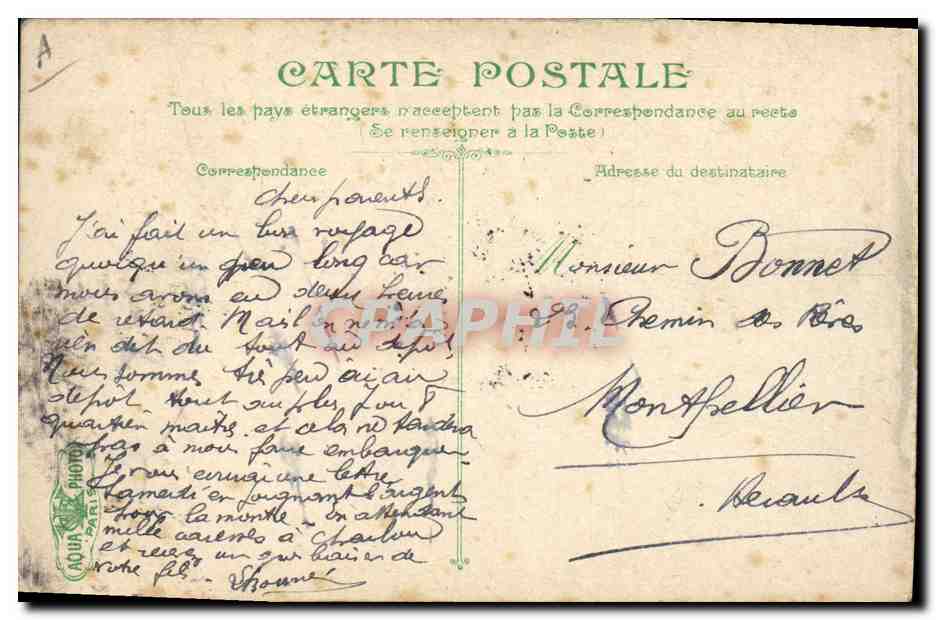 A
CARTE POSTALE
Tous les pays étrangers n'acceptent pas la Correspondance au recto
(Se renseigner à la Poste)
Correspondance
Chers parents.
J'ai fait un bon voyage
quoique un peu long car
nous avons eu deux heures
de retard. Mais on ne m'a
rien dit du tout au dépot
Nous sommes très peu ici au
dépot tout au plus 7 ou 8
quartier maître et cela ne tardera
pas à nous faire embarquer
Je vous enverrai une lettre
Samedi en joignant l'argent
pour la montre. en attendant
mille caresses à
et recevez un gros baiser de
votre fils.
Bonnet
AQUA PHOTO
PARIS
Adresse du destinataire
Monsieur Bonnet
23. Chemin des
Montpellier
Herault
CPAPHIL